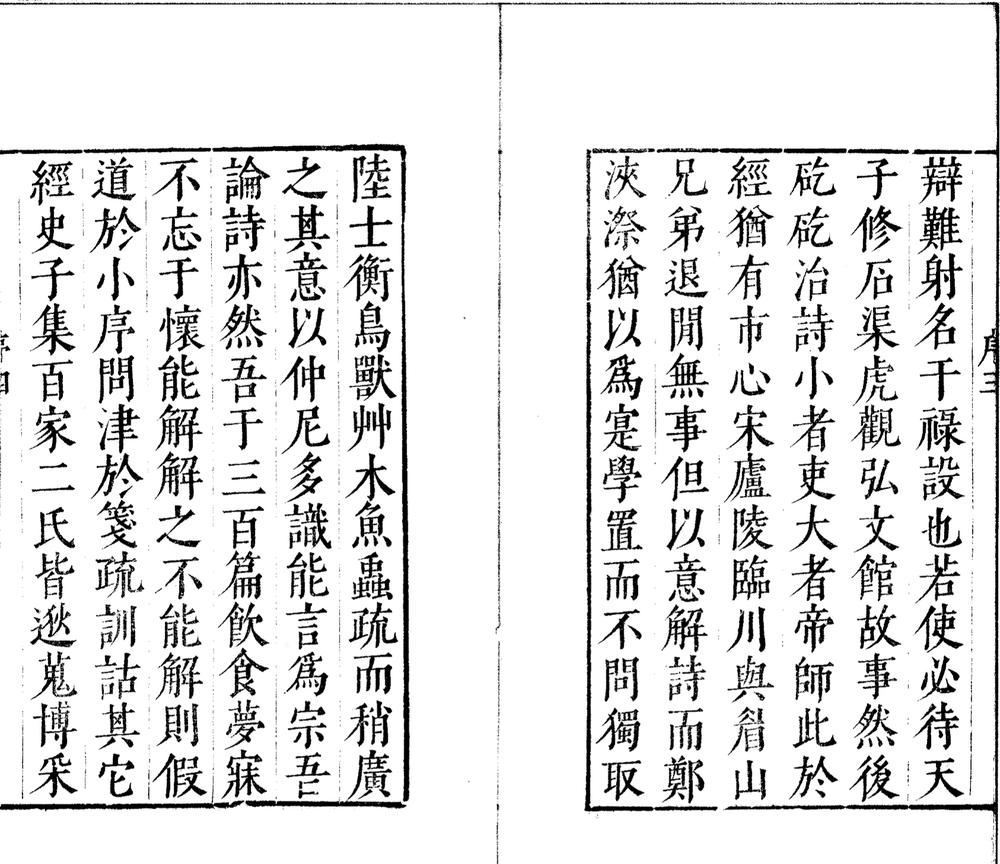 辯難射名干祿設也若使必待天
子修石渠虎觀弘文館故事然後
矻矻治詩小者吏大者帝師此於
經猶有市心宋廬陵臨川與眉山
兄弟退閒無事但以意解詩而鄭
浹漈猶以爲寔學置而不問獨取
序三
陸士衡鳥獸艸木魚蟲疏而稍廣
之其意以仲尼多識能言爲宗吾
論詩亦然吾于三百篇飮食夢寐
不忘于懷能解解之不能解則假
道於小序問津於箋疏訓詁其它
經史子集百家二氏皆逖蒐博采
序四